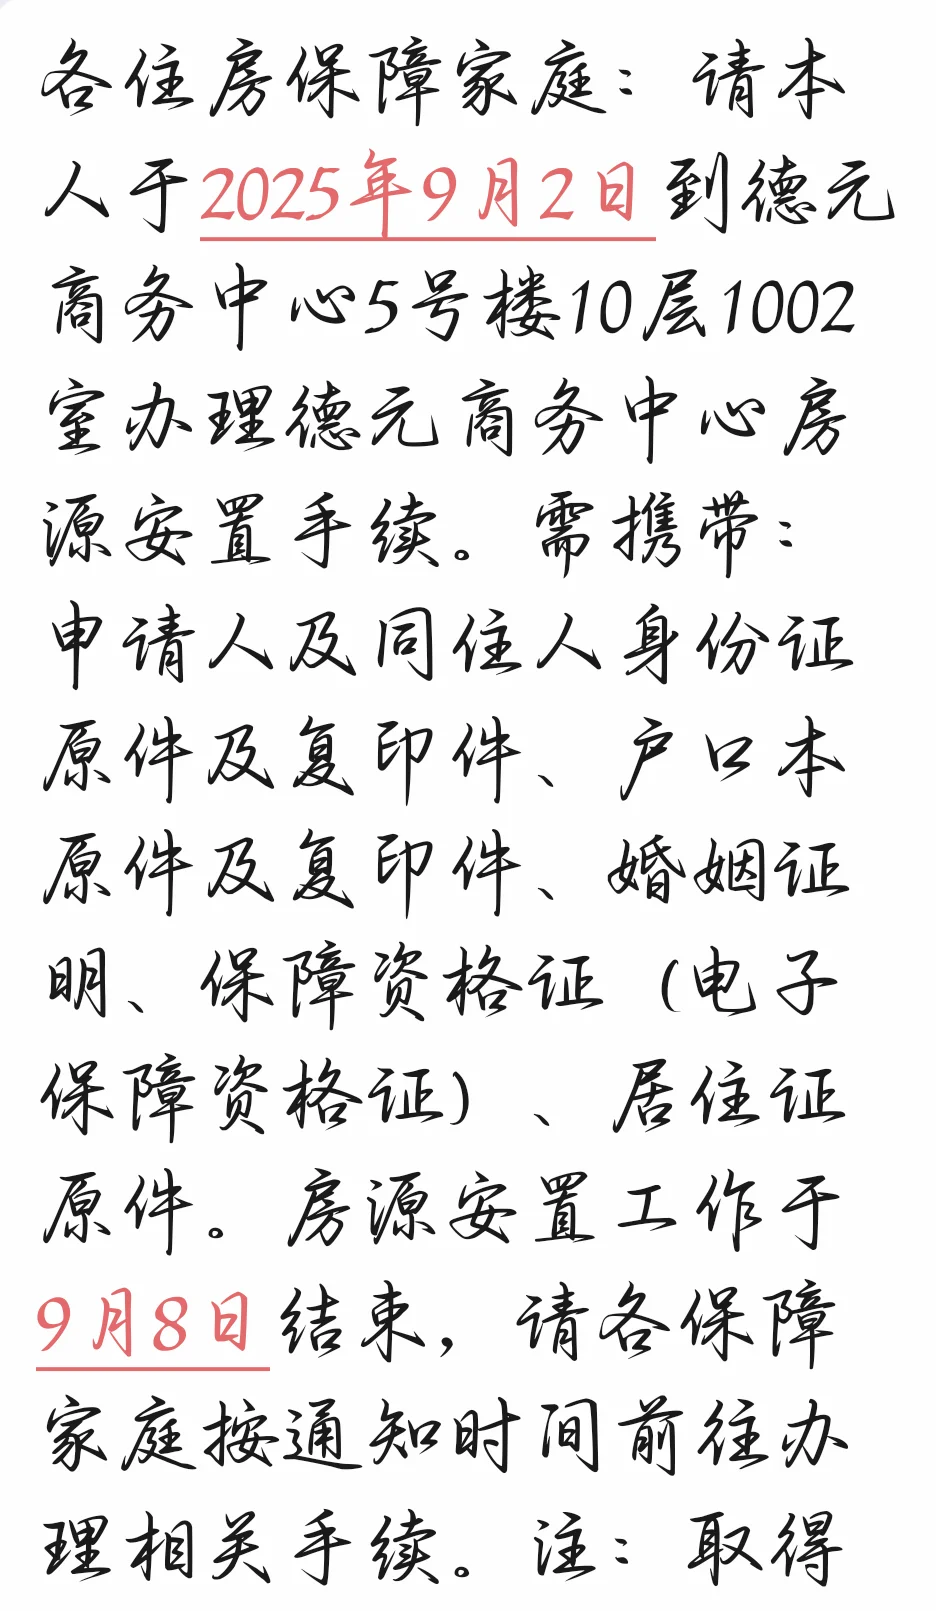 各住房保障家庭：请本
人于2025年9月2日到德元
商务中心5号楼10层1002
室办理德元商务中心房
源安置手续。需携带：
申请人及同住人身份证
原件及复印件、户口本
原件及复印件、婚姻证
明、保障资格证（电子
保障资格证）、居住证
原件。房源安置工作于
9月8日结束，请各保障
家庭按通知时间前往办
理相关手续。注：取得